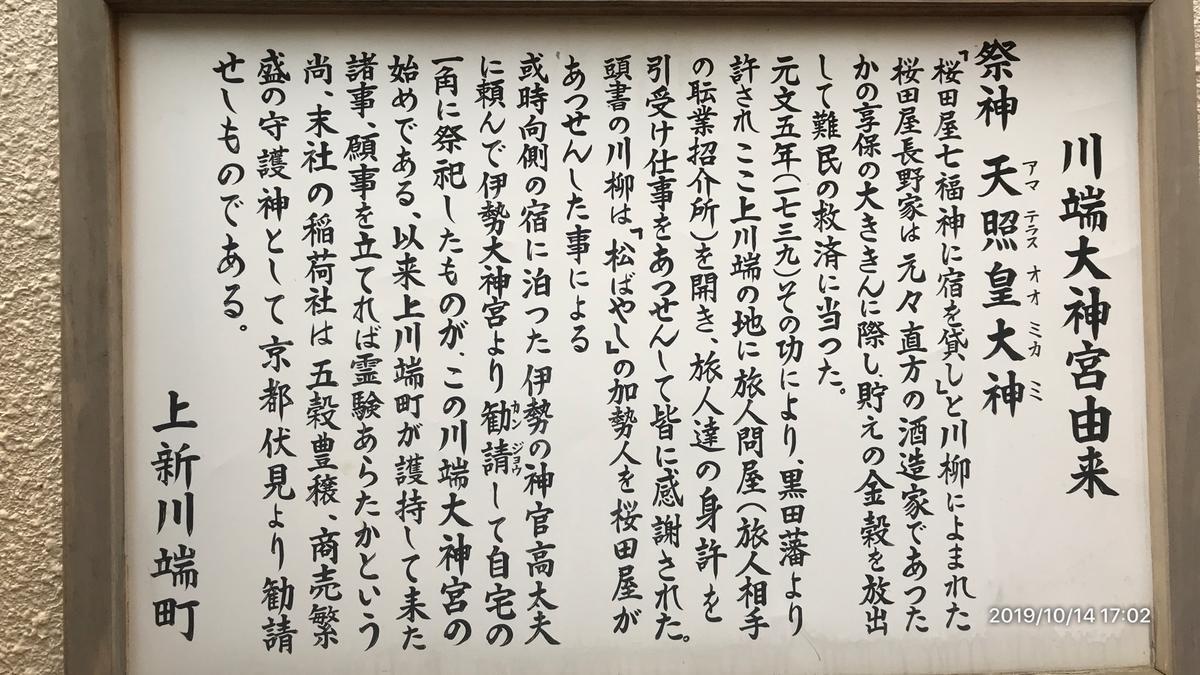 川端大神宮由来
祭神 天照皇大神
アマ テラス オオ ミカ ミ
「桜田屋七福神に宿を貸し」と川柳によまれた
桜田屋長野家は元々直方の酒造家であつた
かの享保の大ききんに際し、貯えの金穀を放出
して難民の救済に当つた。
元文五年(一七三九)その功により、黒田藩より
許されここ上川端の地に旅人問屋(旅人相手
の職業招介所)を開き、旅人達の身許を
引受け仕事をあつせんして皆に感謝された。
頭書の川柳は「松ばやし」の加勢人を桜田屋が
あつせんした事による
或時向側の宿に泊つた伊勢の神官高太夫
に頼んで伊勢大神宮より勧請して自宅の
カン ジョウ
一角に祭祀したものが、この川端大神宮の
始めである、以来上川端町が護持して来た
諸事、願事を立てれば霊験あらたかという
尚、末社の稲荷社は五穀豊穣、商売繁
盛の守護神として京都伏見より勧請
せしものである。
上新川端町
2019/10/14 17:02